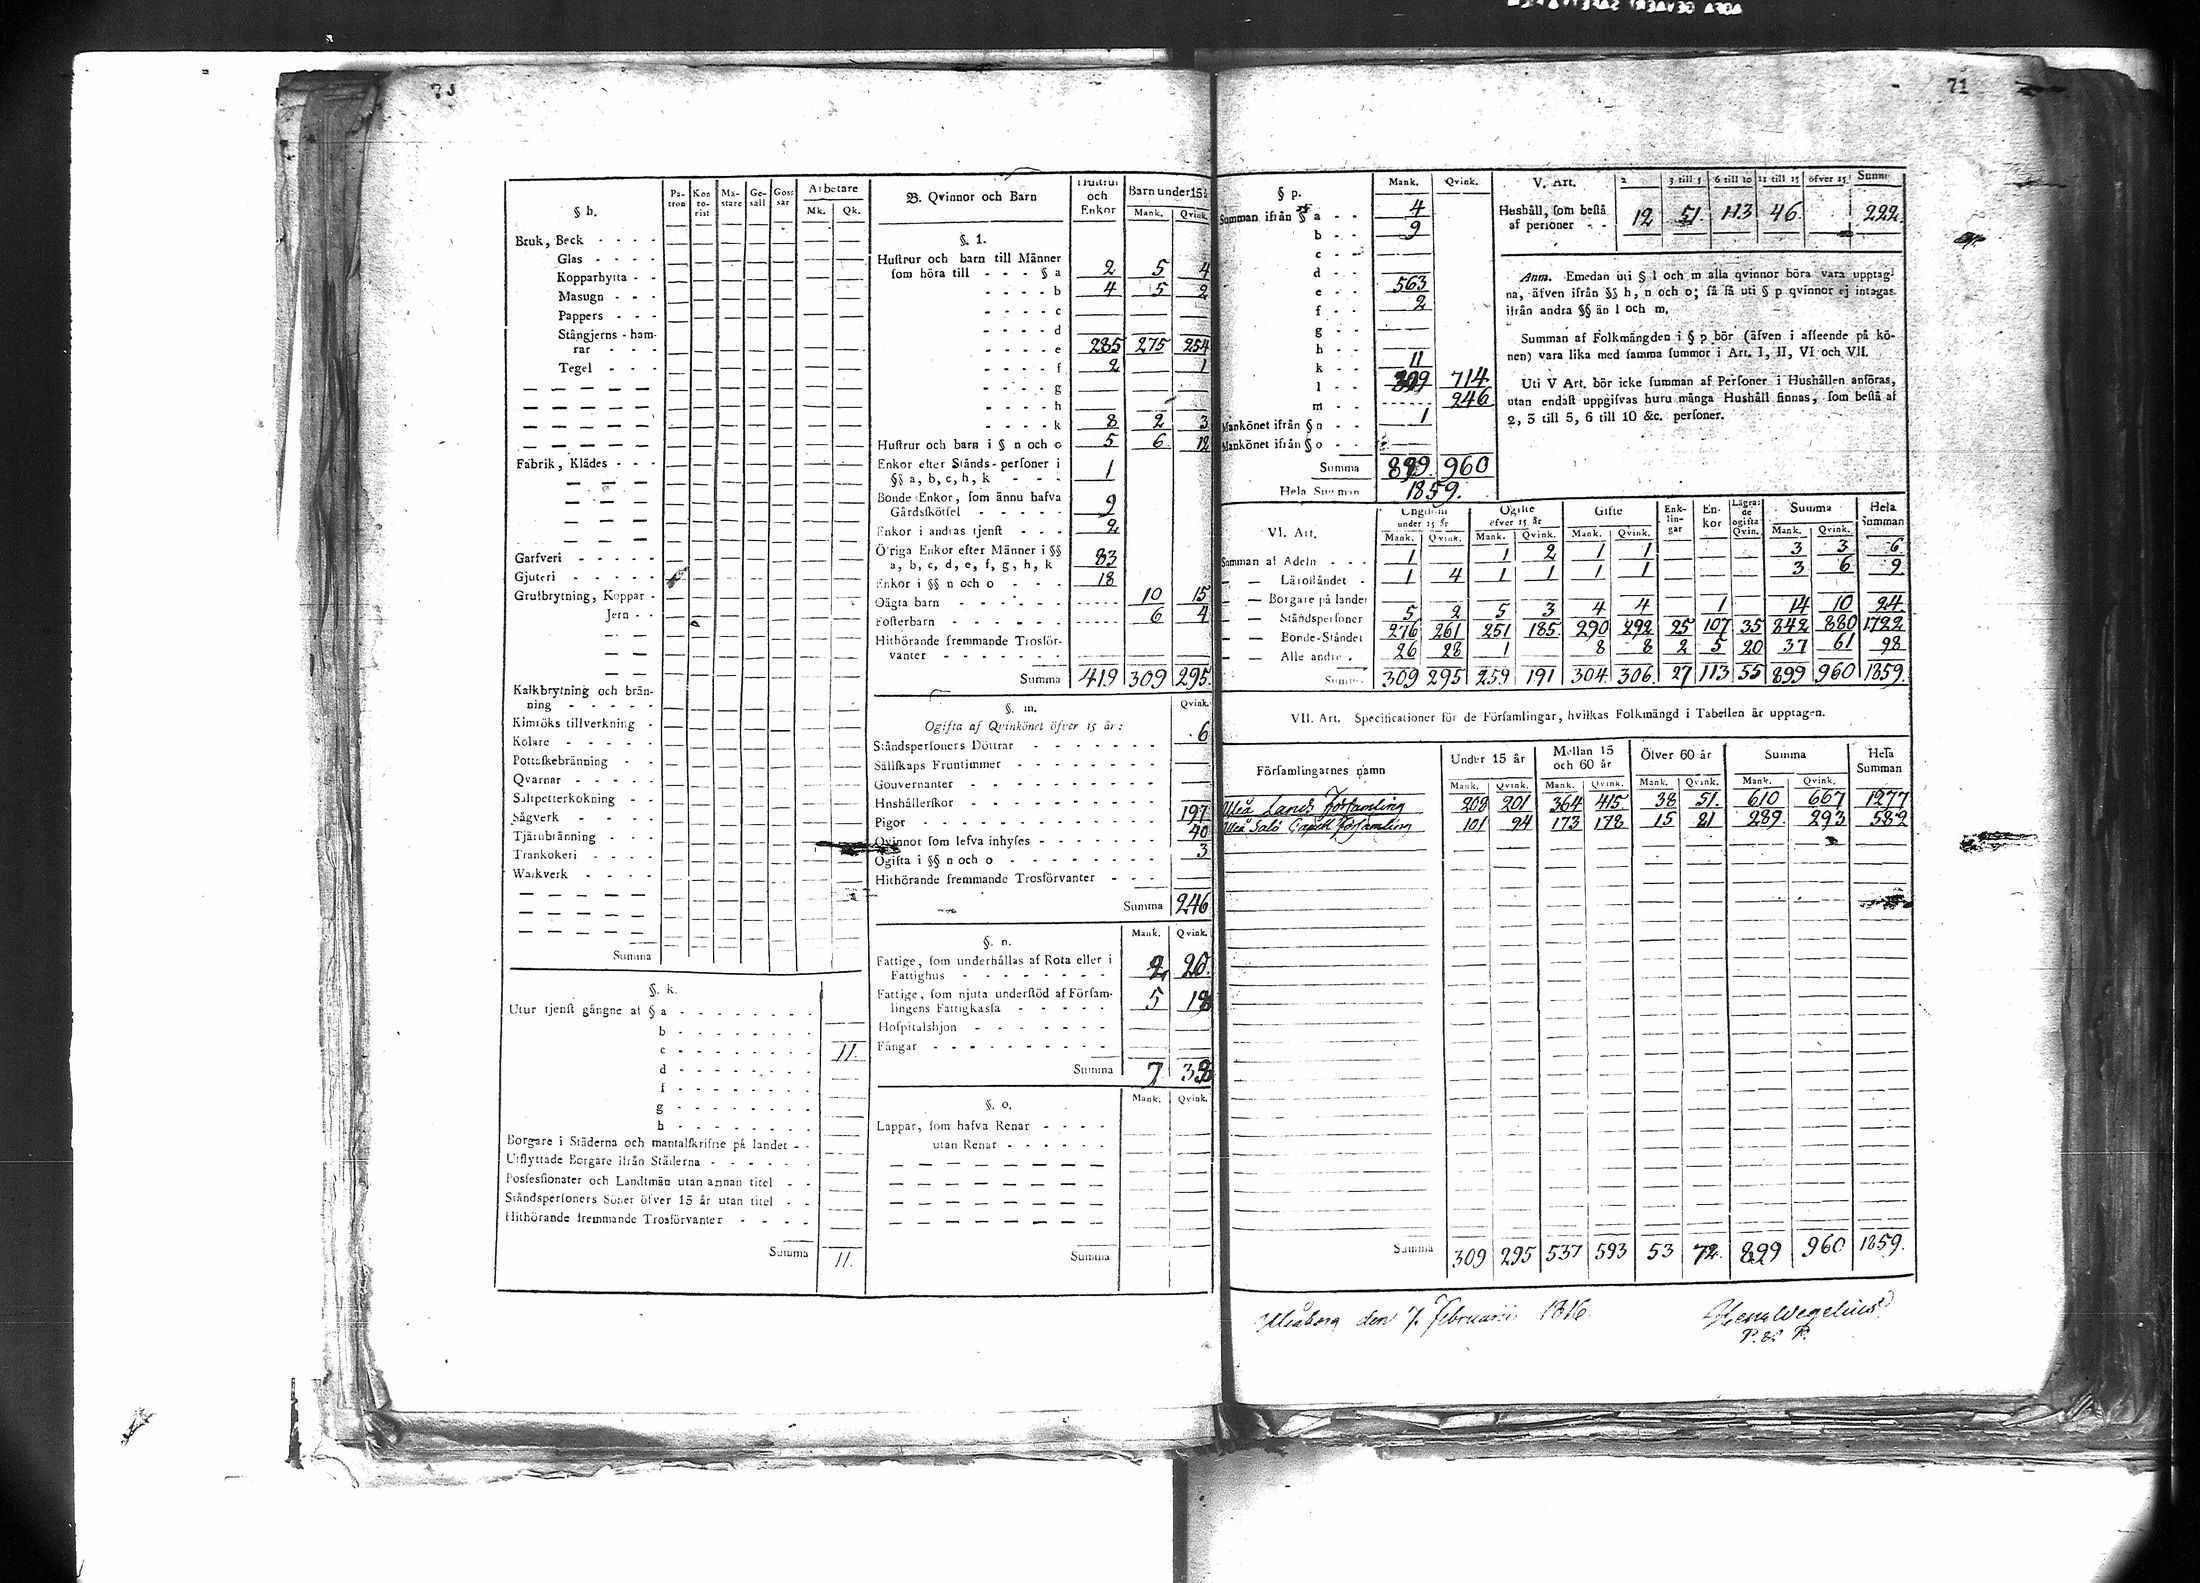 71
§ h. Pa-tron Kon-to-rist Mä-stare Ge-säll Gos-sar Arbetare
Mk. Qk.
Bruk, Beck - - - -
Glas - - - -
Kopparhytta - -
Masugn - - -
Pappers - - -
Stångjerns-ham-
rar - - -
Tegel - - -
Fabrik, Klädes - - -
Garfveri - - - - -
Gjuteri - - - - -
Grufbrytning, Koppar -
Jern - -
Kalkbrytning och brän-
ning - - - - -
Kimröks tillverkning -
Kolare - - - - -
Pottaskebränning - -
Qvarnar - - - - -
Saltpetterkokning - -
Sågverk - - - -
Tjärubränning - - -
Trankokeri - - - -
Walkverk - - - -
Summa
§. k.
Utur tjenst gångne af § a - - - - - - - -
b - - - - - - - -
c - - - - - - - - 11.
d - - - - - - - -
f - - - - - - - -
g - - - - - - - -
h - - - - - - - -
Borgare i Städerna och mantalskrifne på landet - -
Utflyttade Borgare ifrån Städerna - - - - - -
Possessionater och Landtmän utan annan titel - -
Ståndspersoners Söner öfver 15 år utan titel - -
Hithörande fremmande Trosförvanter - - - -
Summa 11.
B. Qvinnor och Barn Hustrur och Enkor Barn under 15 å
Mank. Qvink.
§. 1.
Hustrur och barn till Männer
som höra till - - - § a 2 5 4
- - - - b 4 5 2
- - - - c
- - - - d
- - - - e 285 275 254
- - - - f 2 1
- - - - g
- - - - h
- - - - k 8 2 3
Hustrur och barn i § n och o 5 6 12
Enkor efter Stånds-personer i
§§ a, b, c, h, k - - - 1
Bonde Enkor, som ännu hafva
Gårdsskötsel - - - - - 9
Enkor i andras tjenst - - - 2
Öfriga Enkor efter Männer i §§
a, b, c, d, e, f, g, h, k 83
Enkor i §§ n och o - - - 18
Oägta barn - - - - - - 10 15
Fosterbarn - - - - - - - 6 4
Hithörande fremmande Trosför-
vanter - - - - - - -
Summa 419 309 295.
§. m. Qvink.
Ogifta af Qvinkönet öfver 15 år:
Ståndspersoners Döttrar - - - - - - - 6
Sällskaps Fruntimmer - - - - - - - -
Gouvernanter - - - - - - - - - -
Hushållerskor - - - - - - - - - -
Pigor - - - - - - - - - - - - 197
Qvinnor som lefva inhyses - - - - - - - 40
Ogifta i §§ n och o - - - - - - - - 3
Hithörande fremmande Trosförvanter - - -
Summa 246
§. n. Mank. Qvink.
Fattige, som underhållas af Rota eller i
Fattighus - - - - - - - - 2 20.
Fattige, som njuta understöd af Försam-
lingens Fattigkassa - - - - - 5
Hospitalshjon - - - - - - - -
Fångar - - - - - - - - - -
Summa 7
§. o. Mank. Qvink.
Lappar, som hafva Renar - - - -
utan Renar - - - - - -
Summa
§ p. Mank. Qvink.
Summan ifrån § a - - 4
b - - 9
c - -
d - -
e - - 563
f - - 2
g - -
h - -
k - - 11
l - - 309 714
m - - 246
Mankönet ifrån § n - - 1
Mankönet ifrån § o - -
Summa 899. 960
Hela Summan 1859.
V. Art. 2 3 till 5 6 till 10 11 till 15 öfver 15 Summa
Hushåll, som bestå
af personer - - 12 51 113 46 222
Anm. Emedan uti § l och m alla qvinnor böra vara upptag-
na, äfven ifrån §§ h, n och o; så få uti § p qvinnor ej intagas
ifrån andra §§ än l och m.
Summan af Folkmängden i § p bör (äfven i afseende på kö-
nen) vara lika med samma summor i Art. I, II, VI och VII.
Uti V Art. bör icke summan af Personer i Hushållen anföras,
utan endast uppgifvas huru många Hushåll finnas, som bestå af
2, 3 till 5, 6 till 10 &c. personer.
VI. Art. Ungdom under 15 år Ogifte öfver 15 år Gifte Enk-lin-gar En-kor Lägra-de ogifta Qvin. Summa Hela Summan
Mank. Qvink. Mank. Qvink. Mank. Qvink. Mank. Qvink.
Summan af Adeln - - - 1 1 2 1 1 3 3 6
— — Läroståndet - 1 4 1 1 1 1 3 6 9
— — Borgare på landet
— — Ståndspersoner 5 2 5 3 4 4 1 14 10 24
— — Bonde-Ståndet 276 261 251 185 290 292 25 107 35 842 880 1722
— — Alle andre - 26 28 1 8 8 2 5 20 37 61 98
Summa 309 295 259 191 304 306 27 113 55 899 960 1859.
VII. Art. Specificationer för de Församlingar, hvilkas Folkmängd i Tabellen är upptagen.
Församlingarnes namn Under 15 år Mellan 15 och 60 år Öfver 60 år Summa Hela Summan
Mank. Qvink. Mank. Qvink. Mank. Qvink. Mank. Qvink.
Uleå Lands Församling 208 201 364 415 38 51. 610 667 1277
Uleå Salo Capell Församling 101 94 173 178 15 21 289. 293 582
Summa 309 295 537 593 53 72 899 960 1859.
Uleåborg den 7. Februarii 1816.
Wegelius
P. et P.